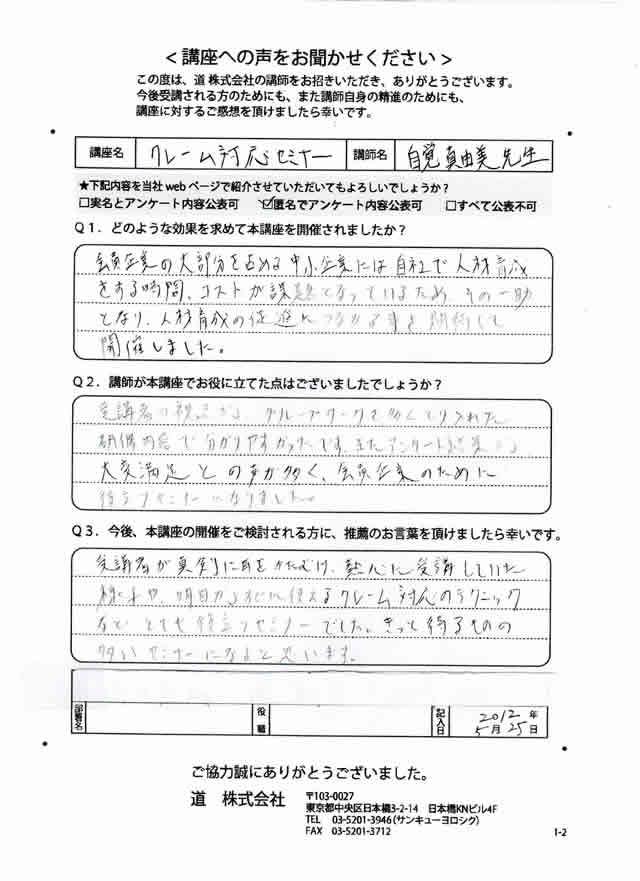 ＜講座への声をお聞かせください＞
この度は、道 株式会社の講師をお招きいただき、ありがとうございます。
今後受講される方のためにも、また講師自身の精進のためにも、
講座に対するご感想を頂けましたら幸いです。
講座名 クレーム対応セミナー 講師名 自覚真由美先生
★下記内容を当社webページで紹介させていただいてもよろしいでしょうか？
□実名とアンケート内容公表可 ☑匿名でアンケート内容公表可 □すべて公表不可
Q1．どのような効果を求めて本講座を開催されましたか？
会員企業の大部分を占める中小企業には自社で人材育成
をする時間、コストが課題となっているため、その一助
となり、人材育成の促進につながる事を期待して
開催しました。
Q2．講師が本講座でお役に立てた点はございましたでしょうか？
受講者の視点から、グループワークを多くとり入れた
研修内容で分かりやすかったです。またアンケート結果から
大変満足との声が多く、会員企業のために
役立つセミナーになりました。
Q3．今後、本講座の開催をご検討される方に、推薦のお言葉を頂けましたら幸いです。
受講者が真剣に耳をかたむけ、熱心に受講していた
様子や、明日からすぐに使えるクレーム対応のテクニック
など とても役立つセミナーでした。きっと得るものの
多いセミナーになると思います。
部署名 役職 記入日 2012年
5月25日
ご協力誠にありがとうございました。
道 株式会社 〒103-0027
東京都中央区日本橋3-2-14 日本橋KNビル4F
TEL 03-5201-3946（サンキューヨロシク）
FAX 03-5201-3712
1-2